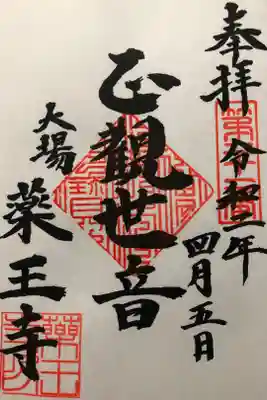 奉拝
令和二年
四月五日
正觀世音
大場
薬王寺